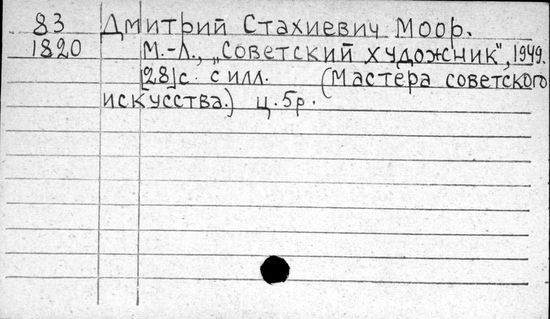 83 Дмитрий Стахиевич Моор.
1820 М.-Л., „Советский художник", 1949.
[28]с. с илл. (Мастера советского
искусства.) ц. 5р.